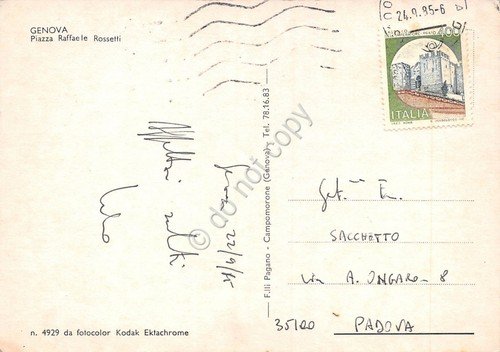 GENOVA
Piazza Raffaele Rossetti
24.9.85-6
400
ITALIA
Affettuosi saluti
Genova 22/9/85
© do not copy
F.lli Pagano - Campomorone (Genova) - Tel. 78.16.83
SACCHETTO
Via A. ONGARO - 8
35100 PADOVA
n. 4929 da fotocolor Kodak Ektachrome